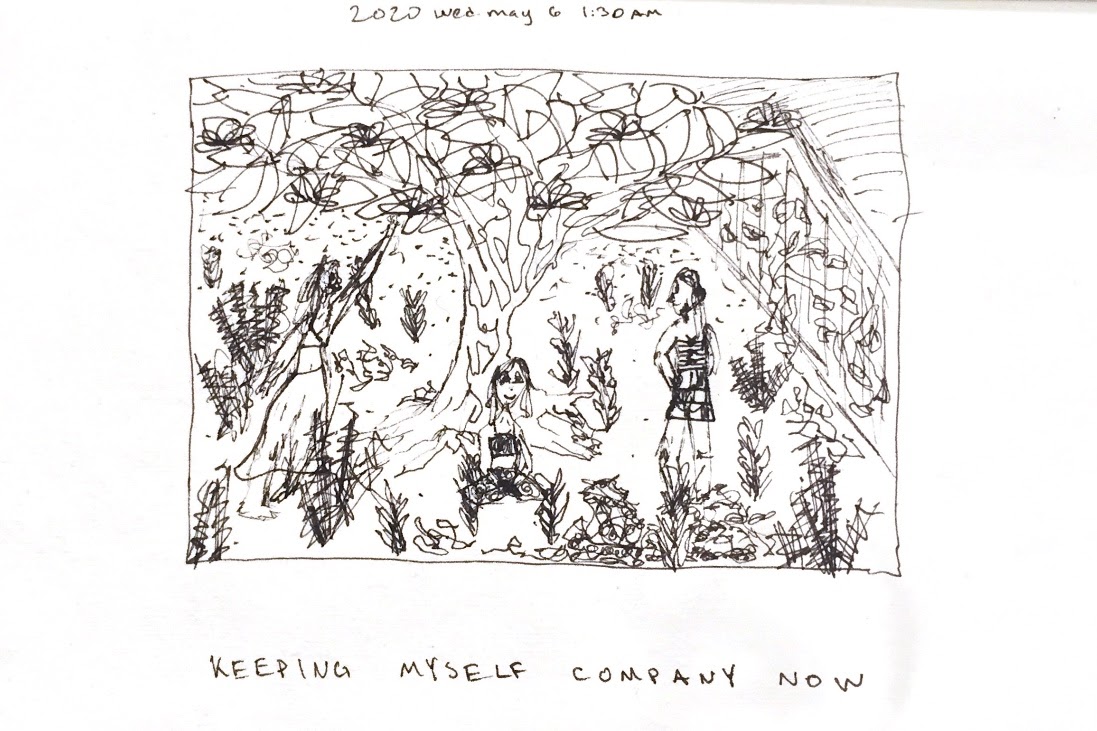 2020 wed. may 6 1:30 AM
KEEPING MYSELF COMPANY NOW